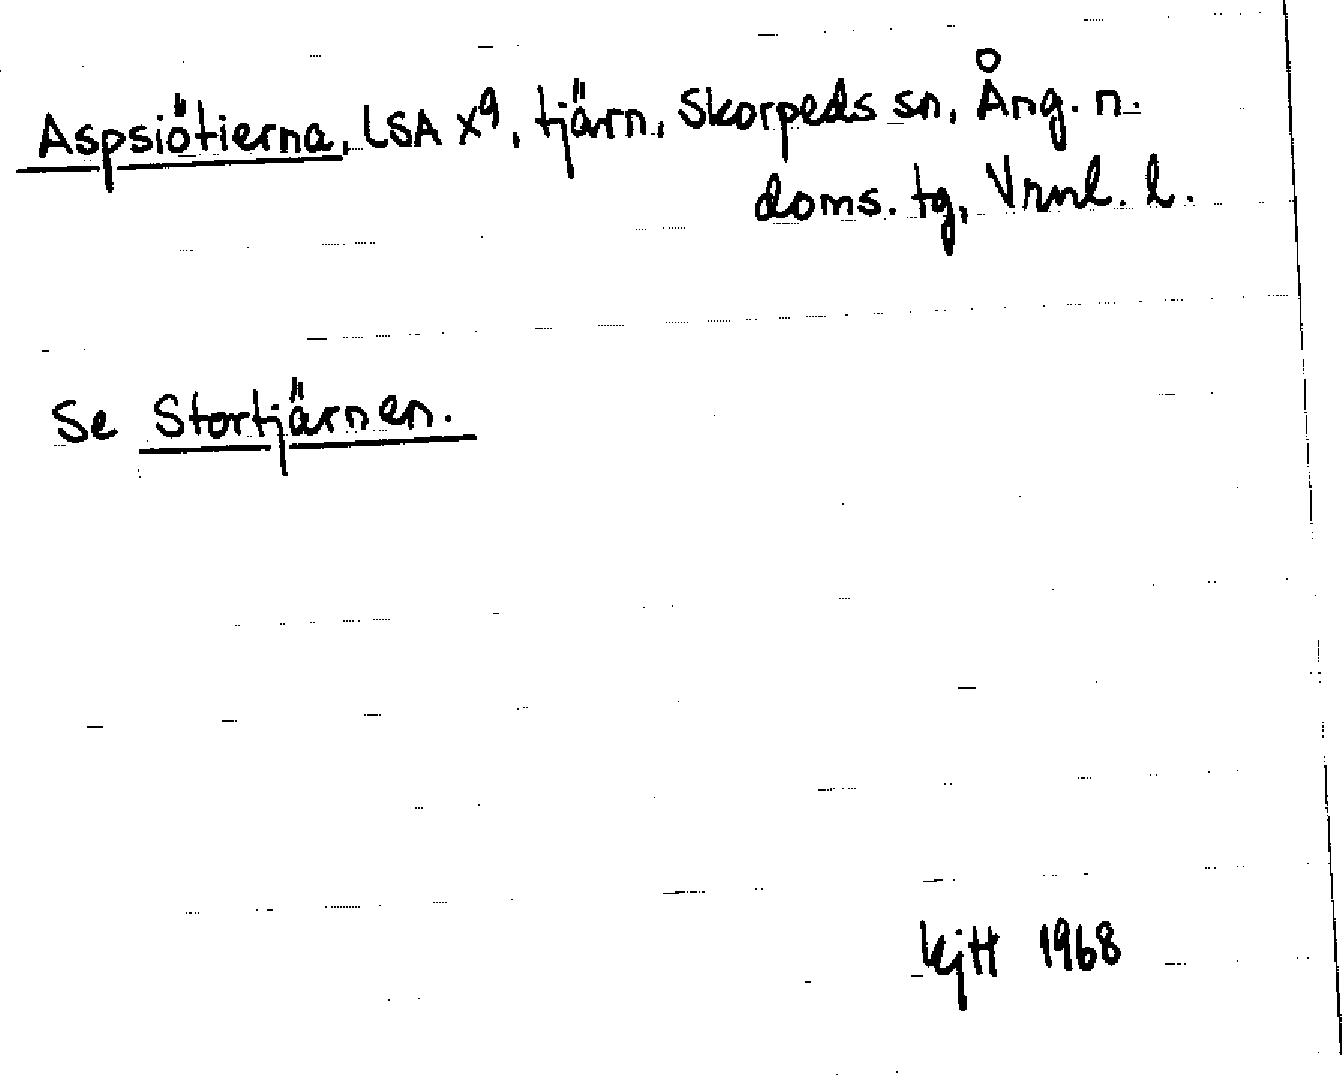 Aspsiötierna, LSA X9, tjärn, Skorpeds sn, Ång. n.
doms. tg, Vrnl. l.
Se Stortjärnen.
KjH 1968